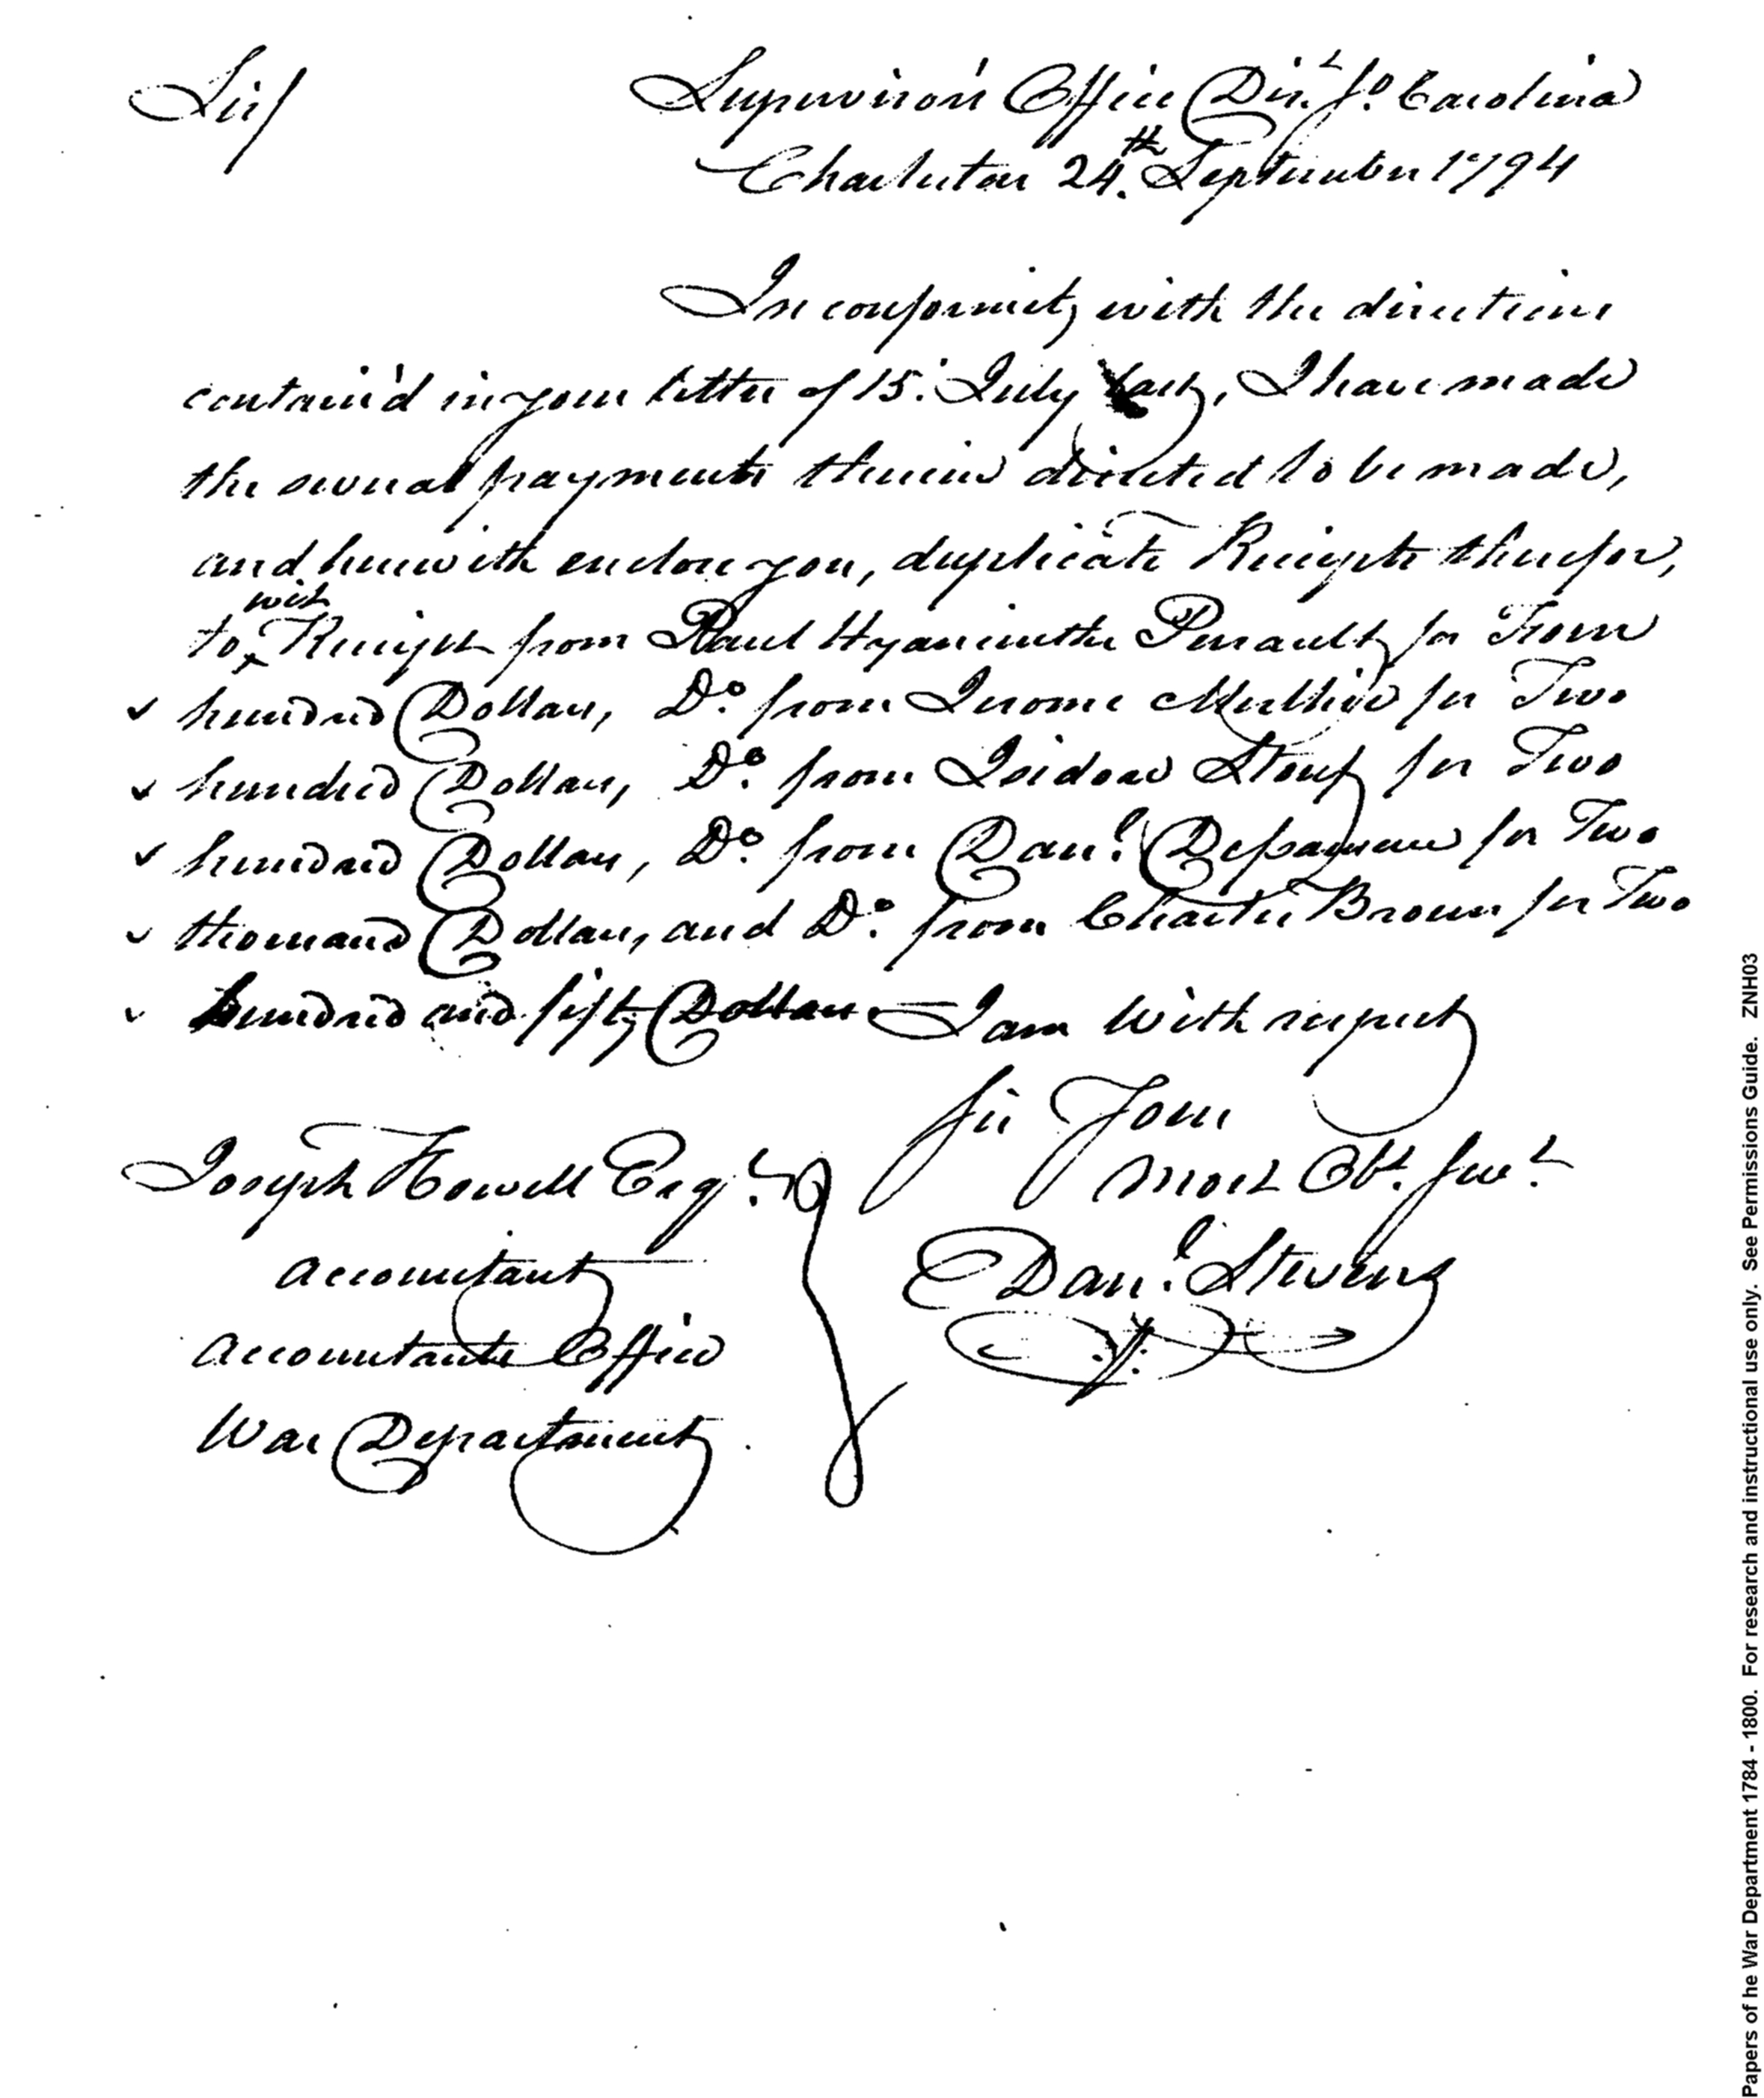 Sir/
Supervisor's Office Dist. So. Carolina
Charleston 24th. September 1794
In conformity with the directions
contain'd in your letter of 15. July last, I have made
the several payments therein directed to be made,
and herewith enclose you, duplicate Receipts therefor,
to wit Receipt from Paul Hyacinthe Perrault for
hundred Dollars, Do. from Jerome for Two
hundred Dollars, Do. from Isidore for Two
hundred Dollars, Do. from Danl. for Two
thousand Dollars, and Do. from Charles Brown for Two
hundred and fifty Dollars. I am with respect
Sir Your
most Obt. Servt.
Danl. Stevens
Joseph Howell Esqr.
Accountant
Accountants Office
War Department.
Papers of he War Department 1784 - 1800. For research and instructional use only. See Permissions Guide. ZNH03